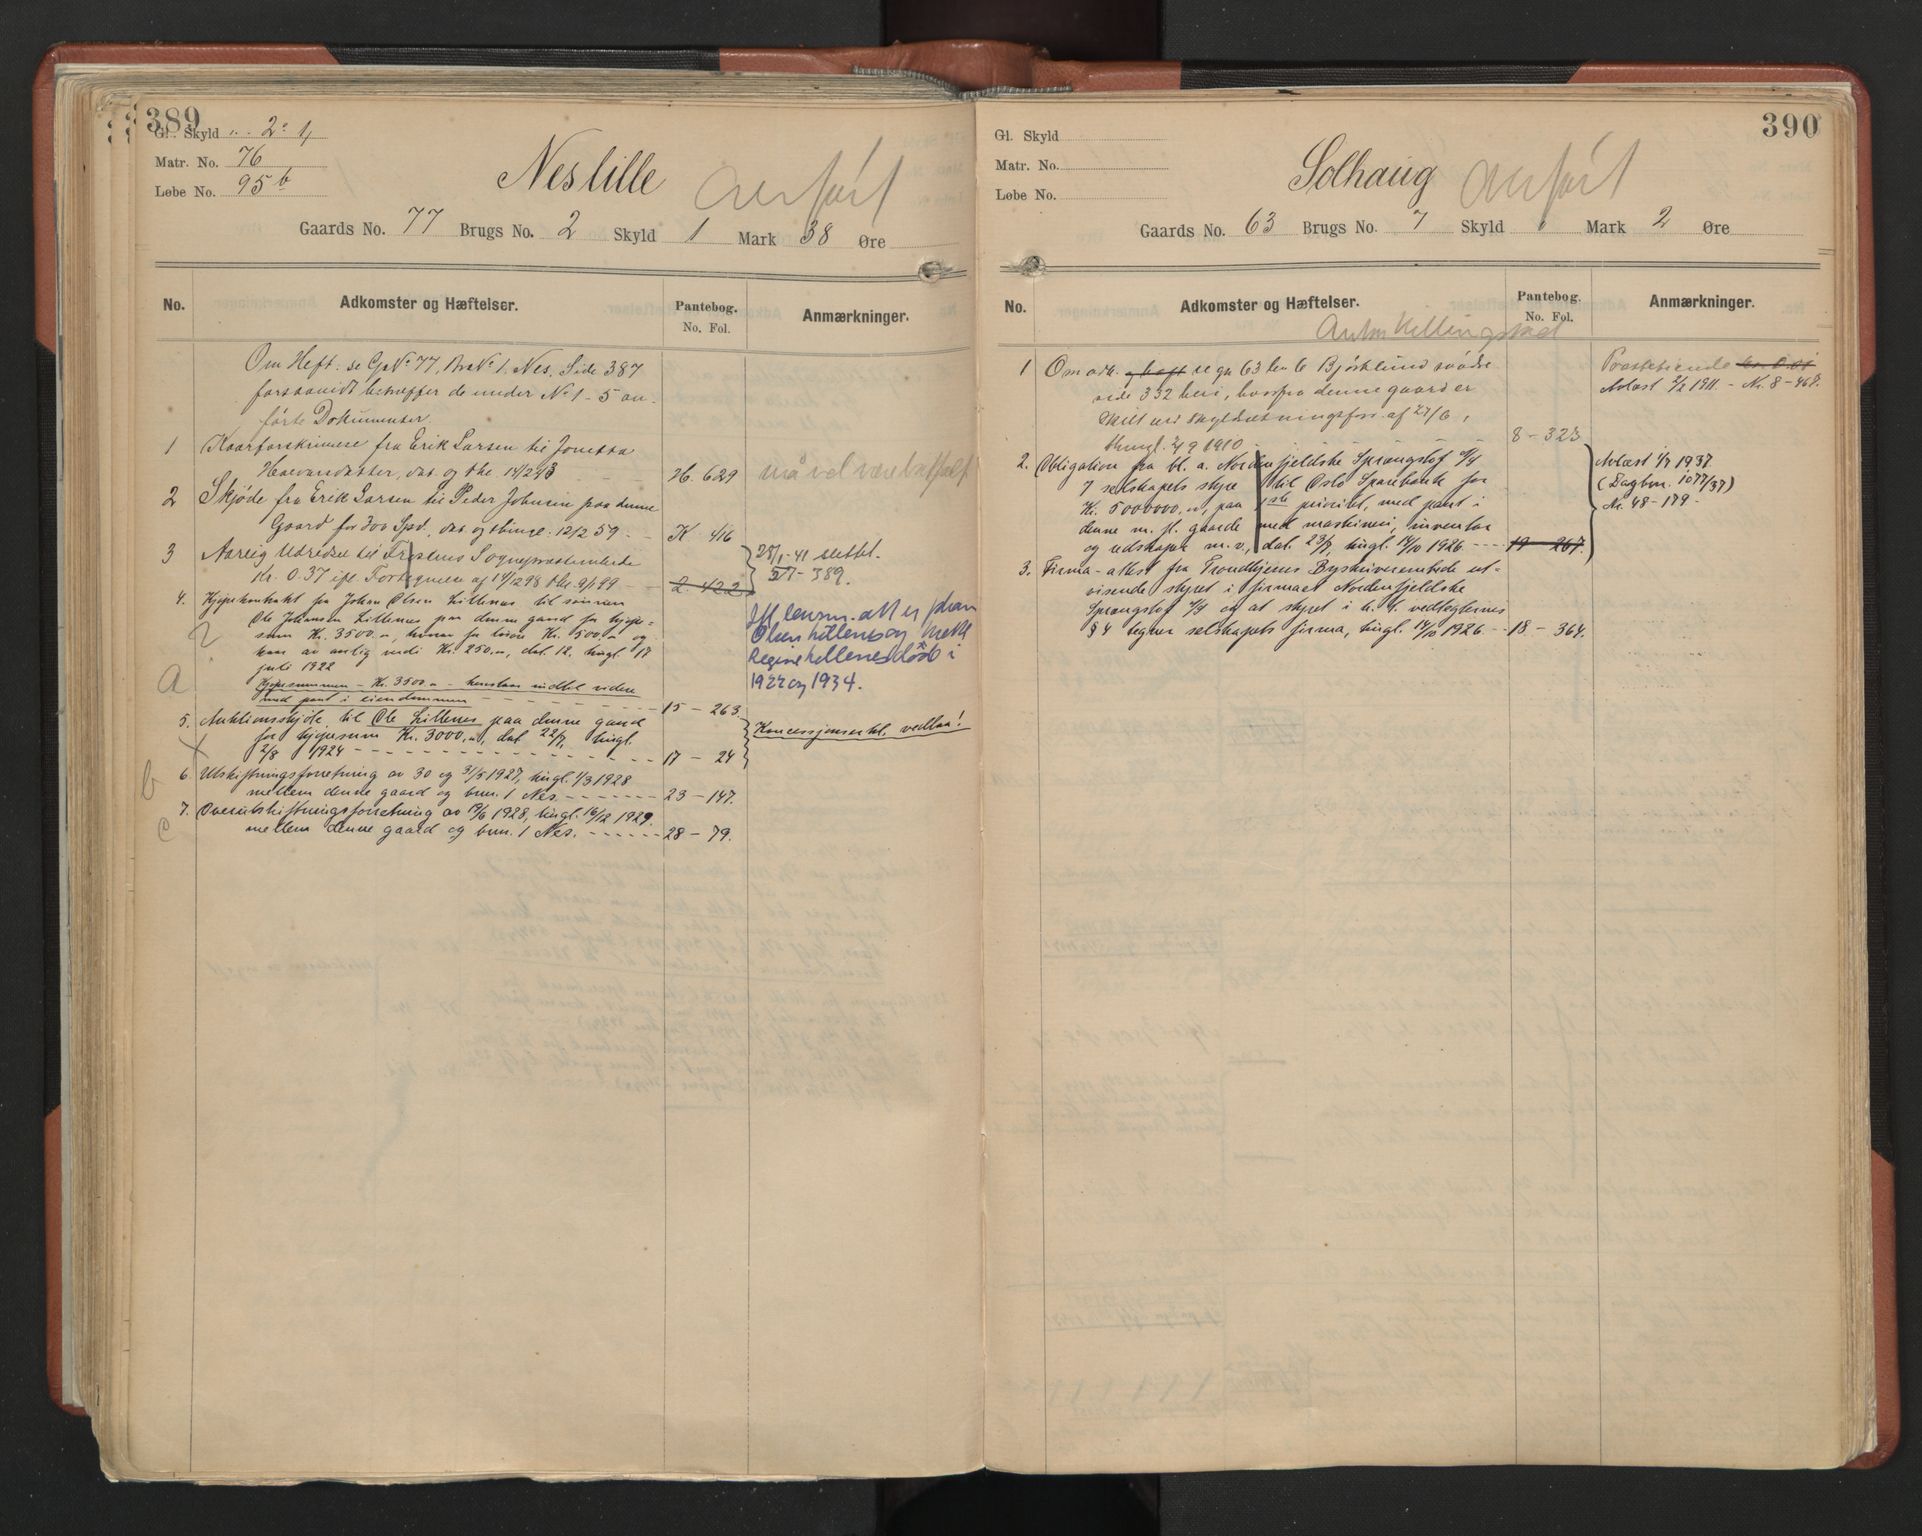 389
Gl. Skyld „ 2 „ 4
Matr. No. 76
Løbe No. 95 b
Neslille
Anført
Gaards No. 77 Brugs No. 2 Skyld 1 Mark 38 Øre
No. Adkomster og Hæftelser. Pantebog. No. Fol. Anmærkninger.
Om Heft. se GNo 77, BrNo 1. Nes, Side 387
forsaavidt betræffer de under No 1 - 5 an-
førte Dokumenter.
1 Kaarforskrivelse fra Erik Larsen til Jonetta
Haavardsdatter, dat og thl. 14/2 43 H. 629 må vel være bortfalt
2 Skjøde fra Erik Larsen til Peder Johnsen paa denne
Gaard for 300 Spd, dat og thingl. 12/2 59. K 416
3 Aarlig Udredsel til Frostens Sognepræstembede
Kr. 0.37 ifl. Fortegnelse af 14/2 98 thl. 9/1 99 2. 422 28/1-41 slettet.
57 - 389.
4. Kjøpekontrakt fra Johan Olsen Lillenes til sønnen
Ole Johansen Lillenes paa denne gaard for kjøpe-
sum Kr. 3500.-, hvorav for løsøre Kr. 500.- og
kaar av aarlig verdi Kr. 250.-, dat. 12, tingl. 17
juli 1922
Kjøpesummen - Kr. 3500.- - henstaar indtil videre
med pant i eiendommen 15 - 263.
Ifl. lensm. att er Johan
Olsen Lillenes og Mette
Regine Lillenes død i
1922 og 1934.
5. Auktionsskjøte til Ole Lillenes paa denne gaard
for kjøpesum Kr. 3000.-, dat 22/7, tingl.
2/8 1924 17 - 24
Koncessjonsertkl. vedlaa!
6. Utskiftningsforretning av 30 og 31/5 1927, tingl. 1/3 1928
mellem denne gaard og brn. 1 Nes. 23 - 147.
7. Overutskiftningsforretning av 19/6 1928, tingl. 16/12 1929.
mellem denne gaard og brn. 1 Nes. 28 - 79.
a
b
c
390
Gl. Skyld
Matr. No.
Løbe No.
Solhaug
Anført
Gaards No. 63 Brugs No. 7 Skyld 0 Mark 2 Øre
No. Adkomster og Hæftelser. Pantebog. No. Fol. Anmærkninger.
Anton Killingstad
1 Om adk. og heft se gn 63 bn 6 Bjørklund
side 332 heri, hvorfra denne gaard er
skilt ved skyldsætningsforr. af 27/6,
thingl. 2/9 1910 8 - 323
Avlæst 2/2 1911. - Nr. 8 - 468.
2. Obligation fra bl. a. Nordenfjeldske Sprængstof A/S
7 selskapets styre til Oslo Sparebank for
Kr. 5000000.-, paa 1ste prioritet, med pant i
denne m. fl. gaarde med maskiner, inventar
og redskaper m.v., dat. 23/7, tingl. 14/10 1926 19 - 267.
Avlæst 1/7 1937
(Dagbnr. 1077/37)
Nr. 48 - 179 -
3. Firma-attest fra Trondhjems Byskriverembede ut-
visende styret i firmaet Nordenfjeldske
Sprængstof A/S og at styret i h. t. vedtægternes
§ 4 tegner selskapets firma, tingl. 14/10 1926 18 - 364.